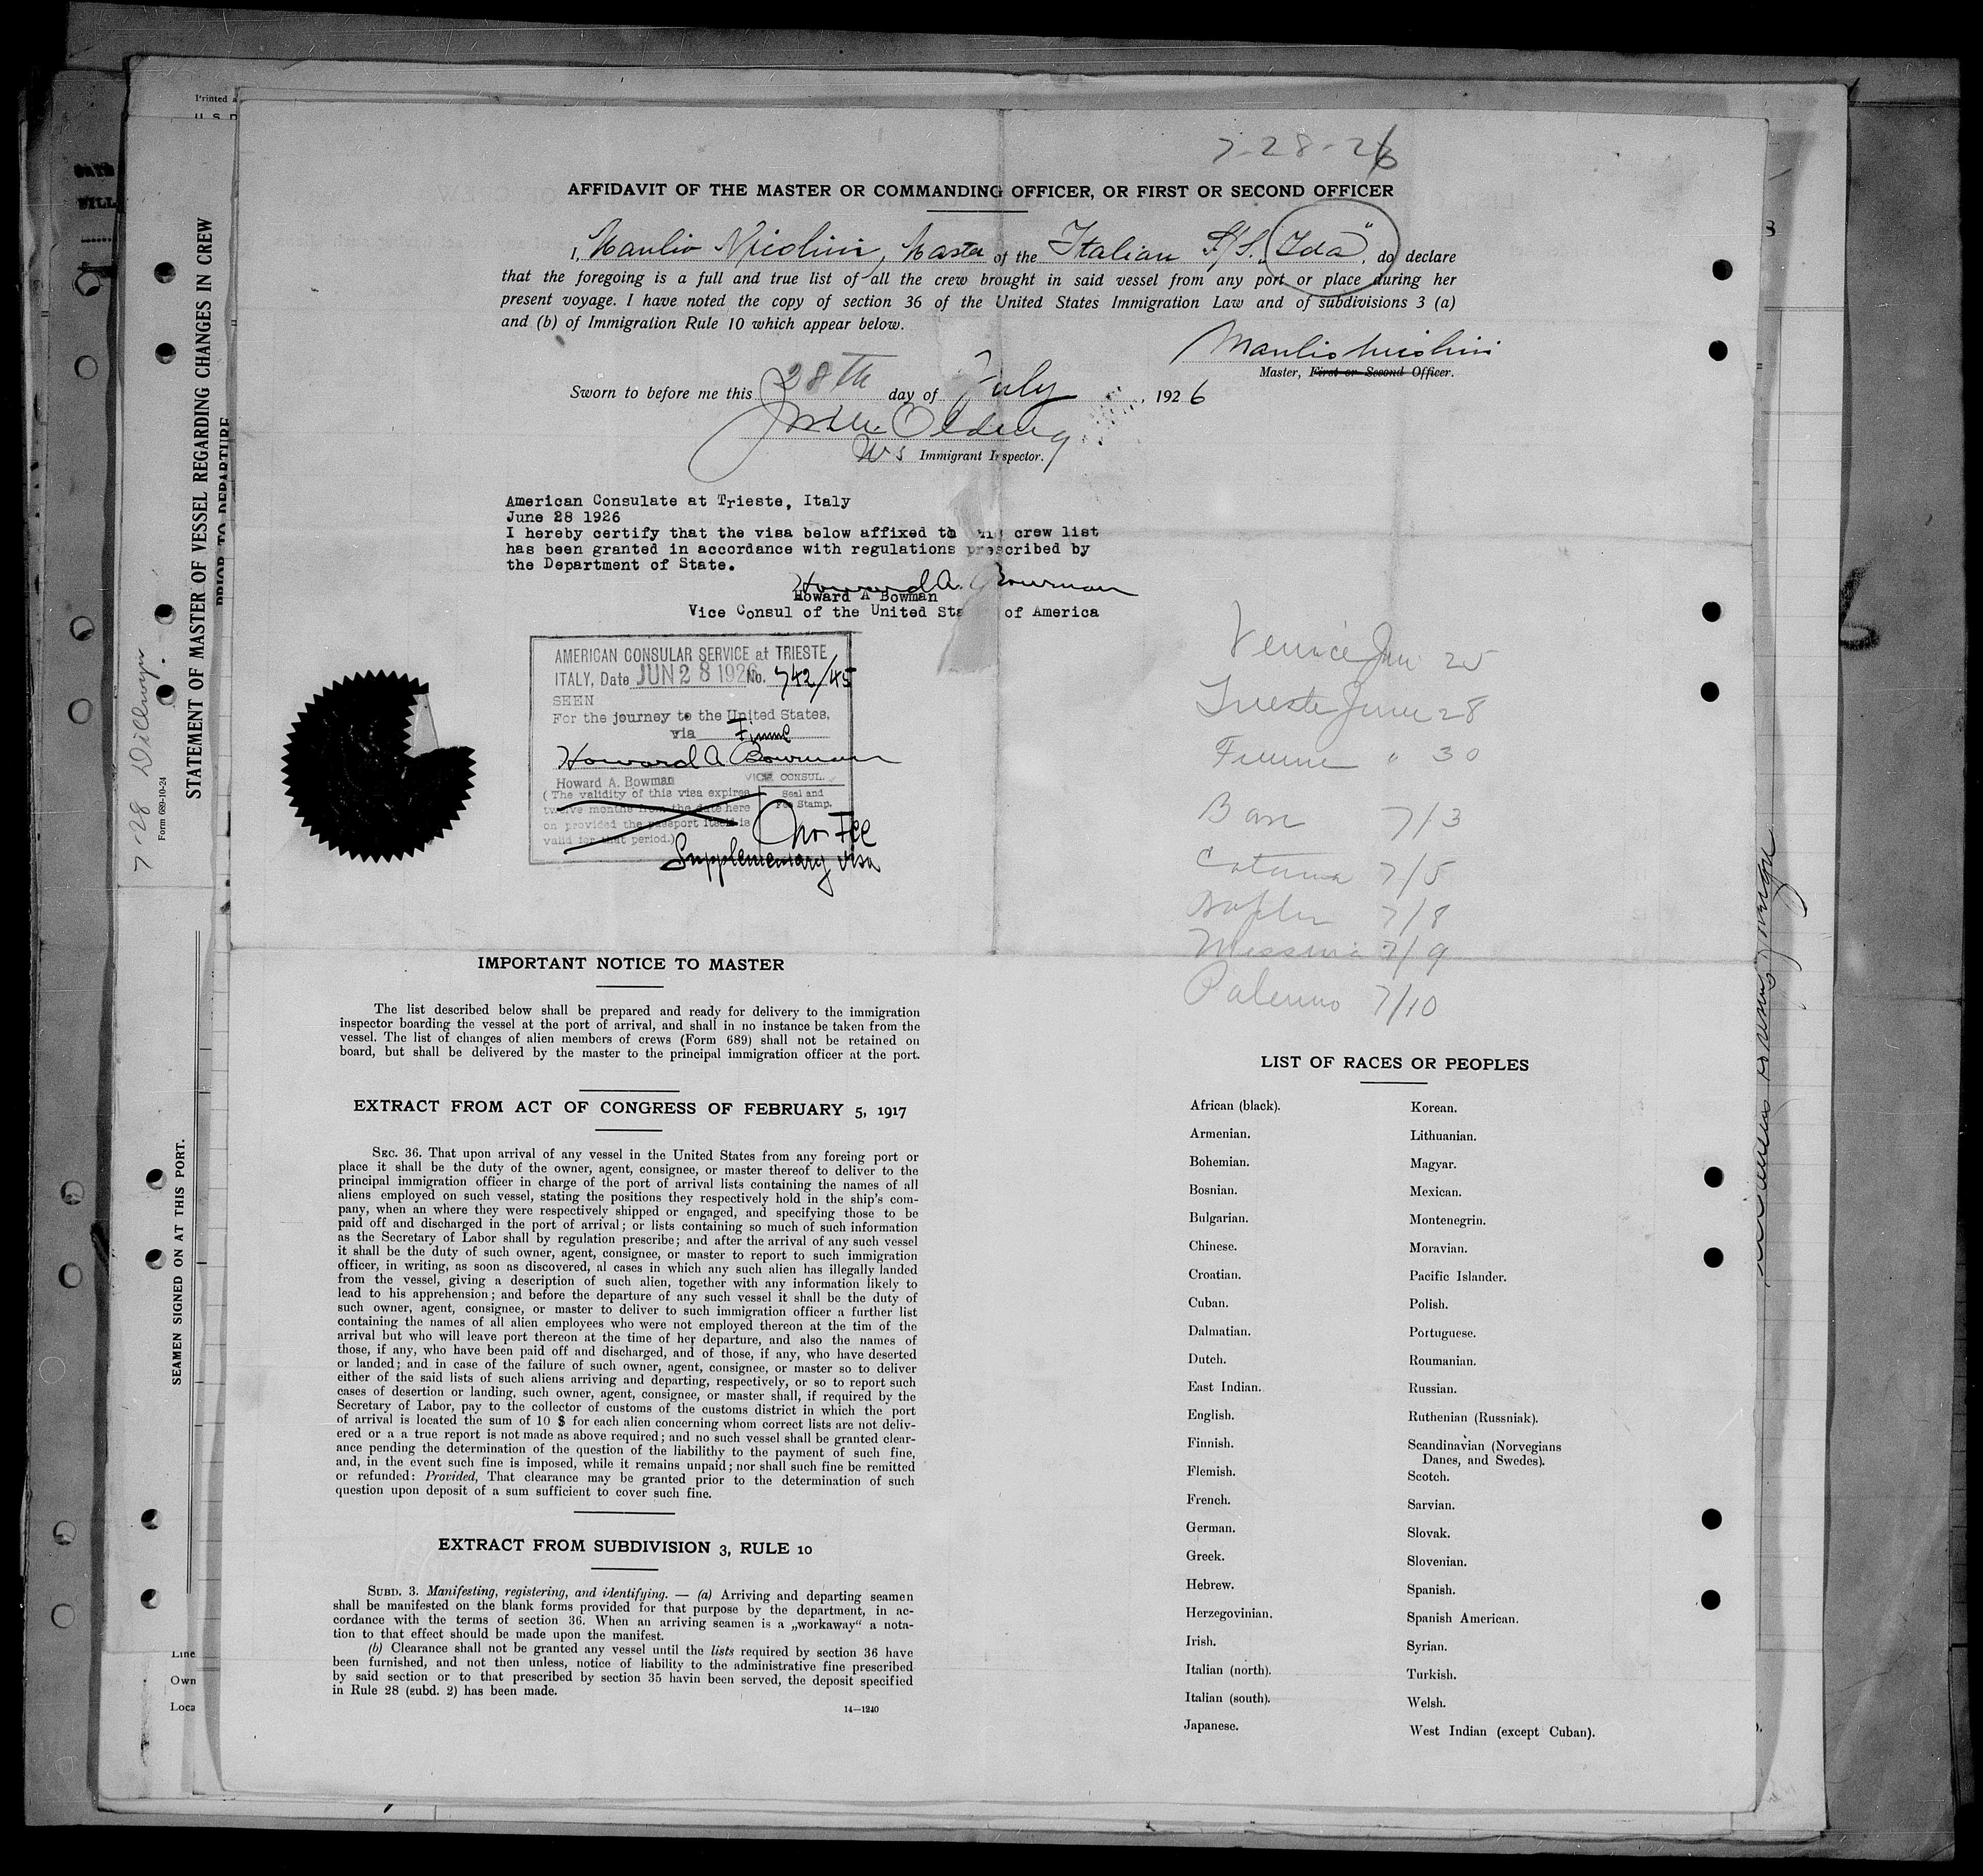 7-28-26
AFFIDAVIT OF THE MASTER OR COMMANDING OFFICER, OR FIRST OR SECOND OFFICER
I, Manlio Nicolini, Master of the Italian S/S. „Ida“, do declare
that the foregoing is a full and true list of all the crew brought in said vessel from any port or place during her
present voyage. I have noted the copy of section 36 of the United States Immigration Law and of subdivisions 3 (a)
and (b) of Immigration Rule 10 which appear below.
Manlio Nicolini
Master, First or Second Officer.
Sworn to before me this 28th day of July, 1926
Immigrant Inspector.
American Consulate at Trieste, Italy
June 28 1926
I hereby certify that the visa below affixed to crew list
has been granted in accordance with regulations prescribed by
the Department of State.
Howard A. Bowman
Howard A Bowman
Vice Consul of the United Sta of America
AMERICAN CONSULAR SERVICE at TRIESTE
ITALY, Date JUN 28 1926 No. 742/45
SEEN
For the journey to the United States,
via Fiume
Howard A Bowman
Howard A. Bowman VICE CONSUL.
(The validity of this visa expires
twelve months from the date here
on provided the passport itself is
valid for that period.)
Seal and
Fee Stamp.
No Fee
Supplementary visa
Venice Jun 25
Trieste June 28
Fiume " 30
Bari 7/3
Catania 7/5
Naples 7/8
Messina 7/9
Palermo 7/10
IMPORTANT NOTICE TO MASTER
The list described below shall be prepared and ready for delivery to the immigration
inspector boarding the vessel at the port of arrival, and shall in no instance be taken from the
vessel. The list of changes of alien members of crews (Form 689) shall not be retained on
board, but shall be delivered by the master to the principal immigration officer at the port.
EXTRACT FROM ACT OF CONGRESS OF FEBRUARY 5, 1917
SEC. 36. That upon arrival of any vessel in the United States from any foreing port or
place it shall be the duty of the owner, agent, consignee, or master thereof to deliver to the
principal immigration officer in charge of the port of arrival lists containing the names of all
aliens employed on such vessel, stating the positions they respectively hold in the ship's com-
pany, when an where they were respectively shipped or engaged, and specifying those to be
paid off and discharged in the port of arrival; or lists containing so much of such information
as the Secretary of Labor shall by regulation prescribe; and after the arrival of any such vessel
it shall be the duty of such owner, agent, consignee, or master to report to such immigration
officer, in writing, as soon as discovered, al cases in which any such alien has illegally landed
from the vessel, giving a description of such alien, together with any information likely to
lead to his apprehension; and before the departure of any such vessel it shall be the duty of
such owner, agent, consignee, or master to deliver to such immigration officer a further list
containing the names of all alien employees who were not employed thereon at the tim of the
arrival but who will leave port thereon at the time of her departure, and also the names of
those, if any, who have been paid off and discharged, and of those, if any, who have deserted
or landed; and in case of the failure of such owner, agent, consignee, or master so to deliver
either of the said lists of such aliens arriving and departing, respectively, or so to report such
cases of desertion or landing, such owner, agent, consignee, or master shall, if required by the
Secretary of Labor, pay to the collector of customs of the customs district in which the port
of arrival is located the sum of 10 $ for each alien concerning whom correct lists are not deliv-
ered or a a true report is not made as above required; and no such vessel shall be granted clear-
ance pending the determination of the question of the liabilithy to the payment of such fine,
and, in the event such fine is imposed, while it remains unpaid; nor shall such fine be remitted
or refunded: Provided, That clearance may be granted prior to the determination of such
question upon deposit of a sum sufficient to cover such fine.
EXTRACT FROM SUBDIVISION 3, RULE 10
SUBD. 3. Manifesting, registering, and identifying. — (a) Arriving and departing seamen
shall be manifested on the blank forms provided for that purpose by the department, in ac-
cordance with the terms of section 36. When an arriving seamen is a „workaway“ a nota-
tion to that effect should be made upon the manifest.
(b) Clearance shall not be granted any vessel until the lists required by section 36 have
been furnished, and not then unless, notice of liability to the administrative fine prescribed
by said section or to that prescribed by section 35 havin been served, the deposit specified
in Rule 28 (subd. 2) has been made.
14—1240
LIST OF RACES OR PEOPLES
African (black).
Armenian.
Bohemian.
Bosnian.
Bulgarian.
Chinese.
Croatian.
Cuban.
Dalmatian.
Dutch.
East Indian.
English.
Finnish.
Flemish.
French.
German.
Greek.
Hebrew.
Herzegovinian.
Irish.
Italian (north).
Italian (south).
Japanese.
Korean.
Lithuanian.
Magyar.
Mexican.
Montenegrin.
Moravian.
Pacific Islander.
Polish.
Portuguese.
Roumanian.
Russian.
Ruthenian (Russniak).
Scandinavian (Norvegians
Danes, and Swedes).
Scotch.
Sarvian.
Slovak.
Slovenian.
Spanish.
Spanish American.
Syrian.
Turkish.
Welsh.
West Indian (except Cuban).
Printed
U. S. D
STATEMENT OF MASTER OF VESSEL REGARDING CHANGES IN CREW
PRIOR TO DEPARTURE
Form 689-10-24
7-28
SEAMEN SIGNED ON AT THIS PORT.
Line
Own
Loca